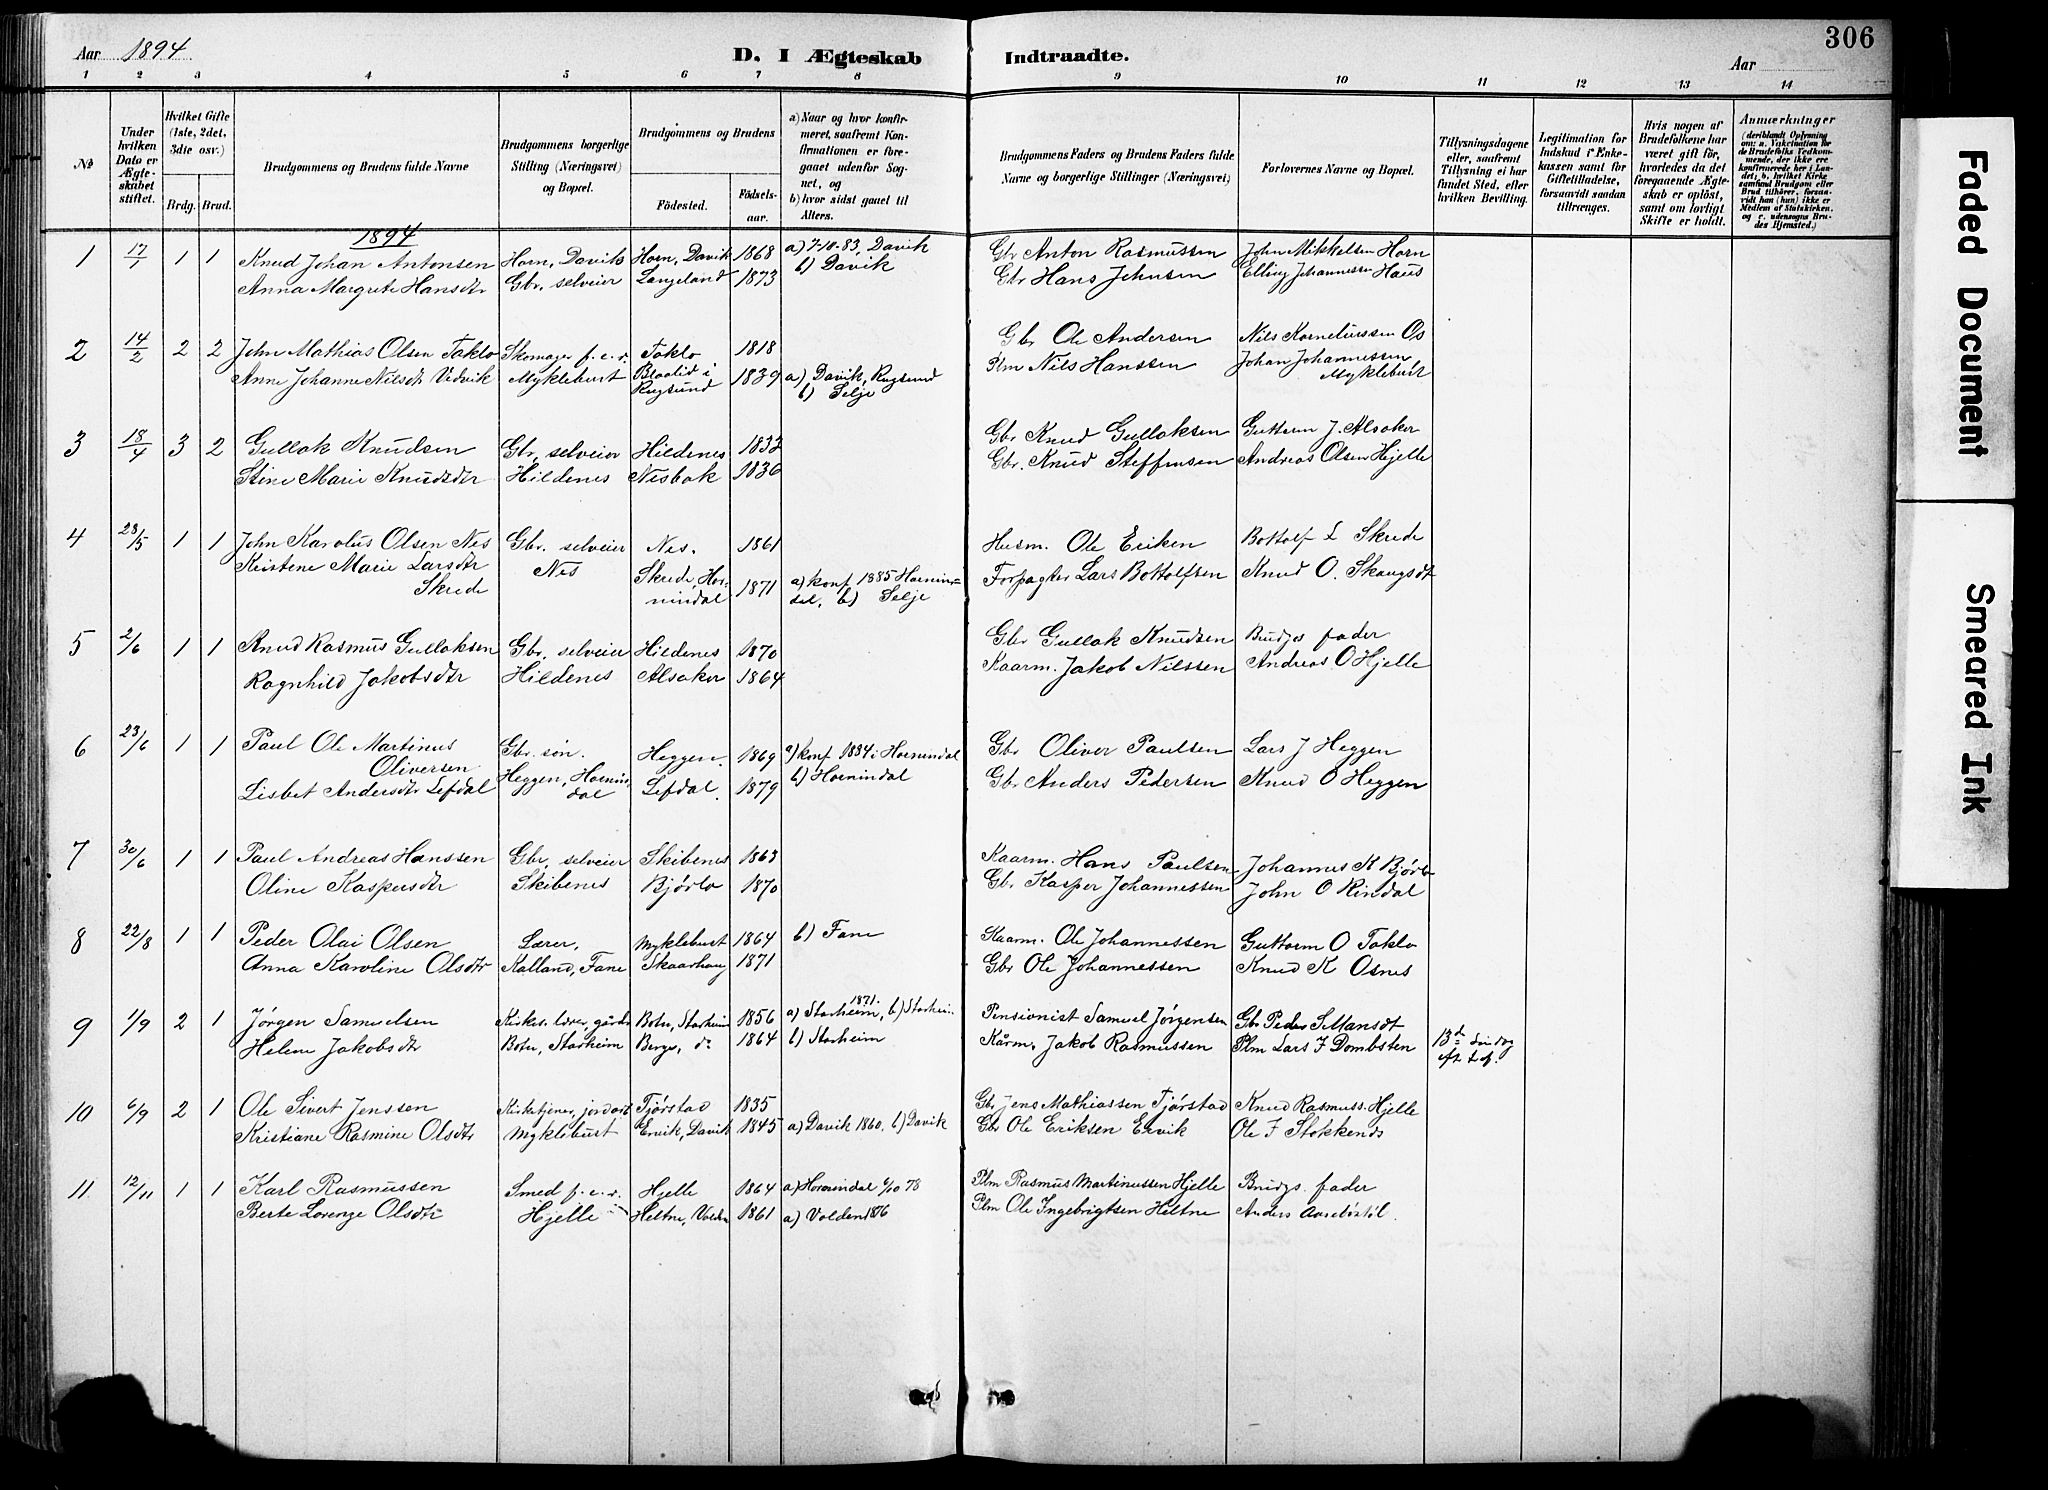 Aar 1894
D. I Ægteskab Indtraadte.
Aar
306
1 2 3 4 5 6 7 8 9 10 11 12 13 14
No
Under hvilken Dato er Ægteskabet stiftet.
Hvilket Gifte (1ste, 2det, 3die osv.)
Brdg. Brud.
Brudgommens og Brudens fulde Navne
Brudgommens borgerlige Stilling (Næringsvei) og Bopæl.
Brudgommens og Brudens
Fødested. Fødselsaar.
a) Naar og hvor konfirmeret, saafremt Konfirmationen er foregaaet udenfor Sognet, og
b) hvor sidst gaaet til Alters.
Brudgommens Faders og Brudens Faders fulde Navne og borgerlige Stillinger (Næringsvei)
Forlovernes Navne og Bopæl.
Tillysningsdagene eller, saafremt Tillysning ei har fundet Sted, efter hvilken Bevilling.
Legitimation for Indskud i Enkekassen samt for Giftetilladelse, forsaavidt saadan tiltrænges.
Hvis nogen af Brudefolkene har været gift før, hvorledes da det foregaaende Ægteskab er opløst, samt om lovligt Skifte er holdt.
Anmærkninger (deriblandt Oplysning om: a. Vakcination for de Brudefolks Vedkommende, der ikke ere konfirmerede her i Landet; b. hvilket Kirkesamfund Brudgom eller Brud tilhører, forsaavidt han (hun) ikke er Medlem af Statskirken, og c. udensogns Brudes Hjemsted.)
1894
1 17/1 1 1 Knud Johan Antonsen Horn, Davik Horn, Davik 1868 a) 7-10-83, Davik Gbr Anton Rasmussen John Mikkelsen Horn
Anna Margrete Hansdtr Gbr. selveier Langeland 1873 b) Davik Gbr Hans Johnsen Elling Johannessen Haus
2 14/2 2 2 John Mathias Olsen Taklo Skomager f.e.r. Taklo 1818 Gbr Ole Andersen Nils Korneliussen Os
Anne Johanne Nilsdtr Vedvik Myklebust Blaalid i Rugsund 1839 a) Davik, Rugsund b) Selje Plm Nils Hanssen Johan Johannessen Myklebust
3 18/4 3 2 Gullak Knudsen Gbr. selveier Hildenes 1832 Gbr Knud Gullaksen Guttorm J. Alsaker
Stine Marie Knudsdtr Hildenes Nesbak 1836 Gbr. Knud Steffensen Andreas Olsen Hjelle
4 28/5 1 1 John Karolus Olsen Nes Gbr. selveier Nes. 1861 Husm. Ole Eriken Bottolf L Skrede
Kristene Marie Larsdtr Skrede Nes Skrede, Hornindal 1871 a) konf 1885 Hornindal, b) Selje Forpagter Lars Bottolfsen Knud O.
5 2/6 1 1 Knud Rasmus Gullaksen Gbr. selveier Hildenes 1870 Gbr Gullak Knudsen Brudgs fader
Ragnhild Jakobsdtr Hildenes Alsaker 1864 Kaarm. Jakob Nilssen Andreas O Hjelle
6 23/6 1 1 Paul Ole Martinus Oliversen Gbr. søn. Heggen. 1869 a) konf 1884 i Hornindal Gbr Oliver Paulsen Lars J Heggen
Lisbet Andersdtr Lefdal Heggen, Hornindal Lefdal. 1879 b) Hornindal Gbr Anders Pedersen Knud O Heggen
7 30/6 1 1 Paul Andreas Hanssen Gbr, selveier Skibenes 1863 Kaarm. Hans Paulsen Johannes K Bjørlo
Oline Kaspersdtr Skibenes Bjørlo 1870 Gbr Kasper Johannessen John O Rindal
8 22/8 1 1 Peder Olai Olsen Lærer, Myklebust 1864 b) Fane Kaarm. Ole Johannessen Guttorm O Taklo
Anna Karoline Olsdtr Kalland, Fane Skaarhaug 1871 Gbr Ole Johannessen Knud K Osnes
9 1/9 2 1 Jørgen Samuelsen Kirkes. lærer, gårdbr Botn, Starheim 1856 a) Starheim, 1871. b) Starheim Pensionist Samuel Jørgensen Gbr Peder S
Helene Jakobsdtr Botn, Starheim Berge, do 1864 b) Starheim Kårm. Jakob Rasmussen Plm Lars J Dombsten 13de Søndag eft. tref.
10 6/9 2 1 Ole Sivert Jenssen Kirketjener, Tjørstad 1835 Gbr Jens Mathiassen Tjørstad Knud Rasmuss. Hjelle
Kristiane Rasmine Olsdtr Myklebust Ervik, Davik 1845 a) Davik 1860, b) Davik Gbr Ole Eriksen Ervik Ole J Stokkenes
11 12/11 1 1 Karl Rasmussen Smed f.e.r. Hjelle 1864 a) Hornindal 6/10 78 Plm Rasmus Martinussen Hjelle Brudgs. fader
Berte Lorenze Olsdtr Hjelle Heltne, Volden 1861 a) Volden 1876 Plm Ole Ingebrigtsen Heltne Anders
Faded Document
Smeared Ink